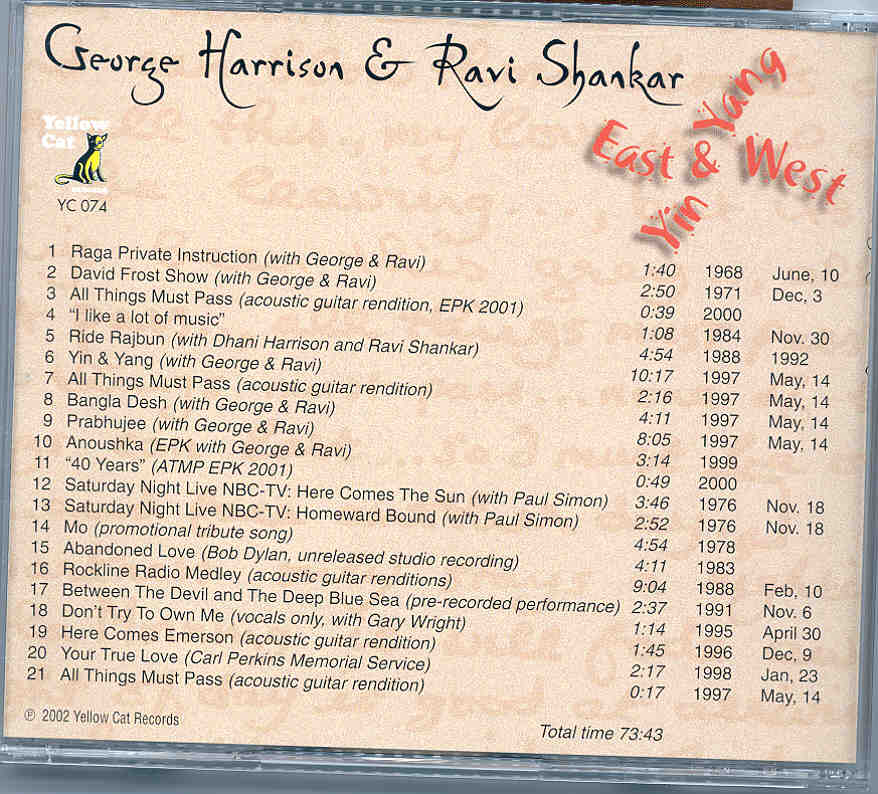 George Harrison & Ravi Shankar
Yellow
Cat
YC 074
East & West
Yin & Yang
1 Raga Private Instruction (with George & Ravi) 1:40 1968 June, 10
2 David Frost Show (with George & Ravi) 2:50 1971 Dec, 3
3 All Things Must Pass (acoustic guitar rendition, EPK 2001) 0:39 2000
4 “I like a lot of music” 1:08 1984 Nov. 30
5 Ride Rajbun (with Dhani Harrison and Ravi Shankar) 4:54 1988 1992
6 Yin & Yang (with George & Ravi) 10:17 1997 May, 14
7 All Things Must Pass (acoustic guitar rendition) 2:16 1997 May, 14
8 Bangla Desh (with George & Ravi) 4:11 1997 May, 14
9 Prabhujee (with George & Ravi) 8:05 1997 May, 14
10 Anoushka (EPK with George & Ravi) 3:14 1999
11 “40 Years” (ATMP EPK 2001) 0:49 2000
12 Saturday Night Live NBC-TV: Here Comes The Sun (with Paul Simon) 3:46 1976 Nov. 18
13 Saturday Night Live NBC-TV: Homeward Bound (with Paul Simon) 2:52 1976 Nov. 18
14 Mo (promotional tribute song) 4:54 1978
15 Abandoned Love (Bob Dylan, unreleased studio recording) 4:11 1983
16 Rockline Radio Medley (acoustic guitar renditions) 9:04 1988 Feb, 10
17 Between The Devil and The Deep Blue Sea (pre-recorded performance) 2:37 1991 Nov. 6
18 Don't Try To Own Me (vocals only, with Gary Wright) 1:14 1995 April 30
19 Here Comes Emerson (acoustic guitar rendition) 1:45 1996 Dec, 9
20 Your True Love (Carl Perkins Memorial Service) 2:17 1998 Jan, 23
21 All Things Must Pass (acoustic guitar rendition) 0:17 1997 May, 14
℗ 2002 Yellow Cat Records
Total time 73:43